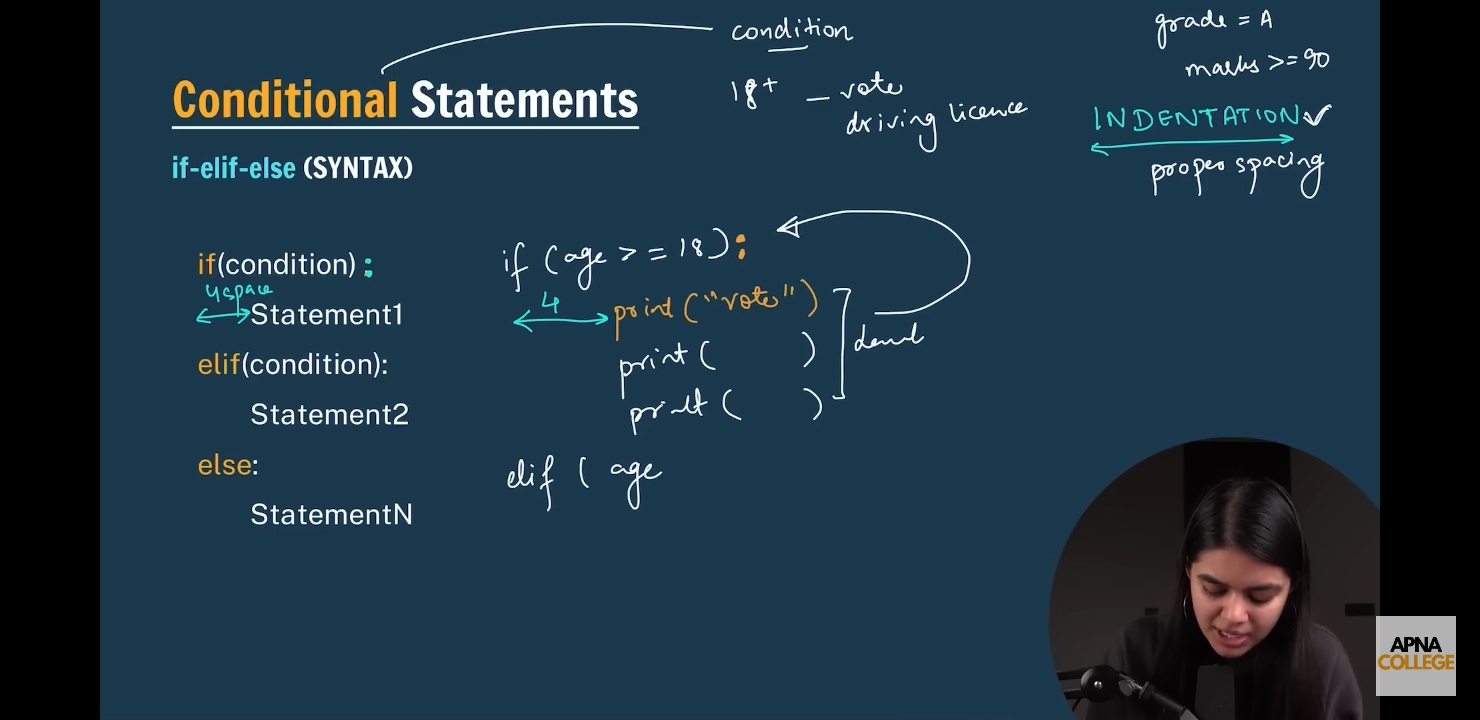 condition
grade = A
marks >= 90
Conditional Statements
18+ – vote
driving licence
INDENTATION ✓
proper spacing
if-elif-else (SYNTAX)
if(condition) :
4space
Statement1
elif(condition):
Statement2
else:
StatementN
if (age >= 18):
4 print("vote")
print( )
print( )
elif ( age
APNA
COLLEGE